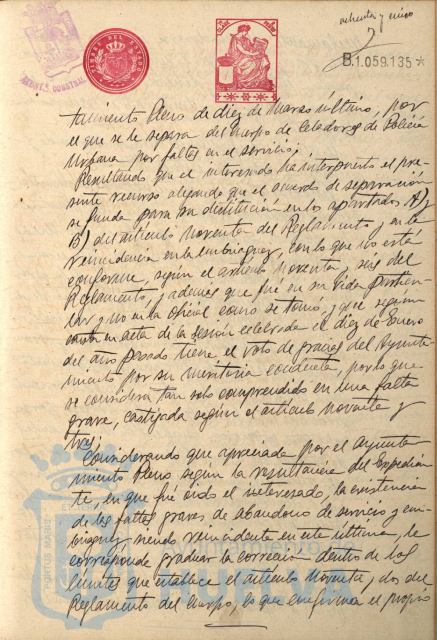 ochenta y cinco
TIMBRE DEL ESTADO
B.1.059.135*
tamiento Pleno de diez de Marzo último, por
el que se le separa del Cuerpo de Celadores de Policía
Urbana por faltas en el servicio;
Resultando que el interesado ha interpuesto el pre-
sente recurso alegando que el acuerdo de separación
se funda para su destitución en los apartados A) y
B) del artículo noventa del Reglamento, y en la
reincidencia en la embriaguez, con lo que no está
conforme, según el artículo noventa y seis del
Reglamento, y además que fué en su vida particu-
lar y no en la oficial como se tomó, y que según
consta en acta de la sesión celebrada el diez de Enero
del año pasado tiene el voto de gracias del Ayunta-
miento por su meritoria conducta, por lo que
se considera tan solo comprendido en una falta
grave, castigada según el artículo noventa y
tres;
Considerando que apreciada por el Ayunta-
miento Pleno según la resultancia del Expedien-
te, en que fué oido el interesado, la existencia
de las faltas graves de abandono de servicio y em-
briaguez, siendo reincidente en esta última, le
corresponde graduar la corrección dentro de los
límites que establece el artículo noventa y dos del
Reglamento del Cuerpo, lo que confirma el propio
HUELVA